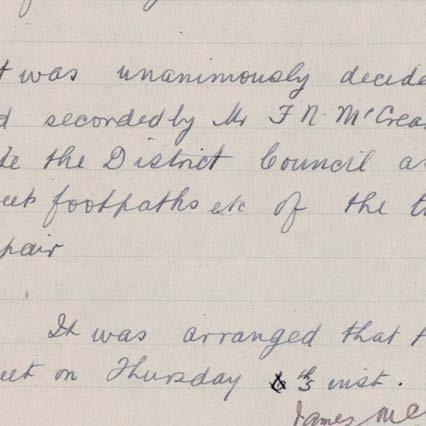 t was unanimously decide
d secorded by Mr F. N. McCrea
te the District Council a
eet footpaths etc of the t
pair
It was arranged that t
eet on Thursday 5th inst.
James Mc